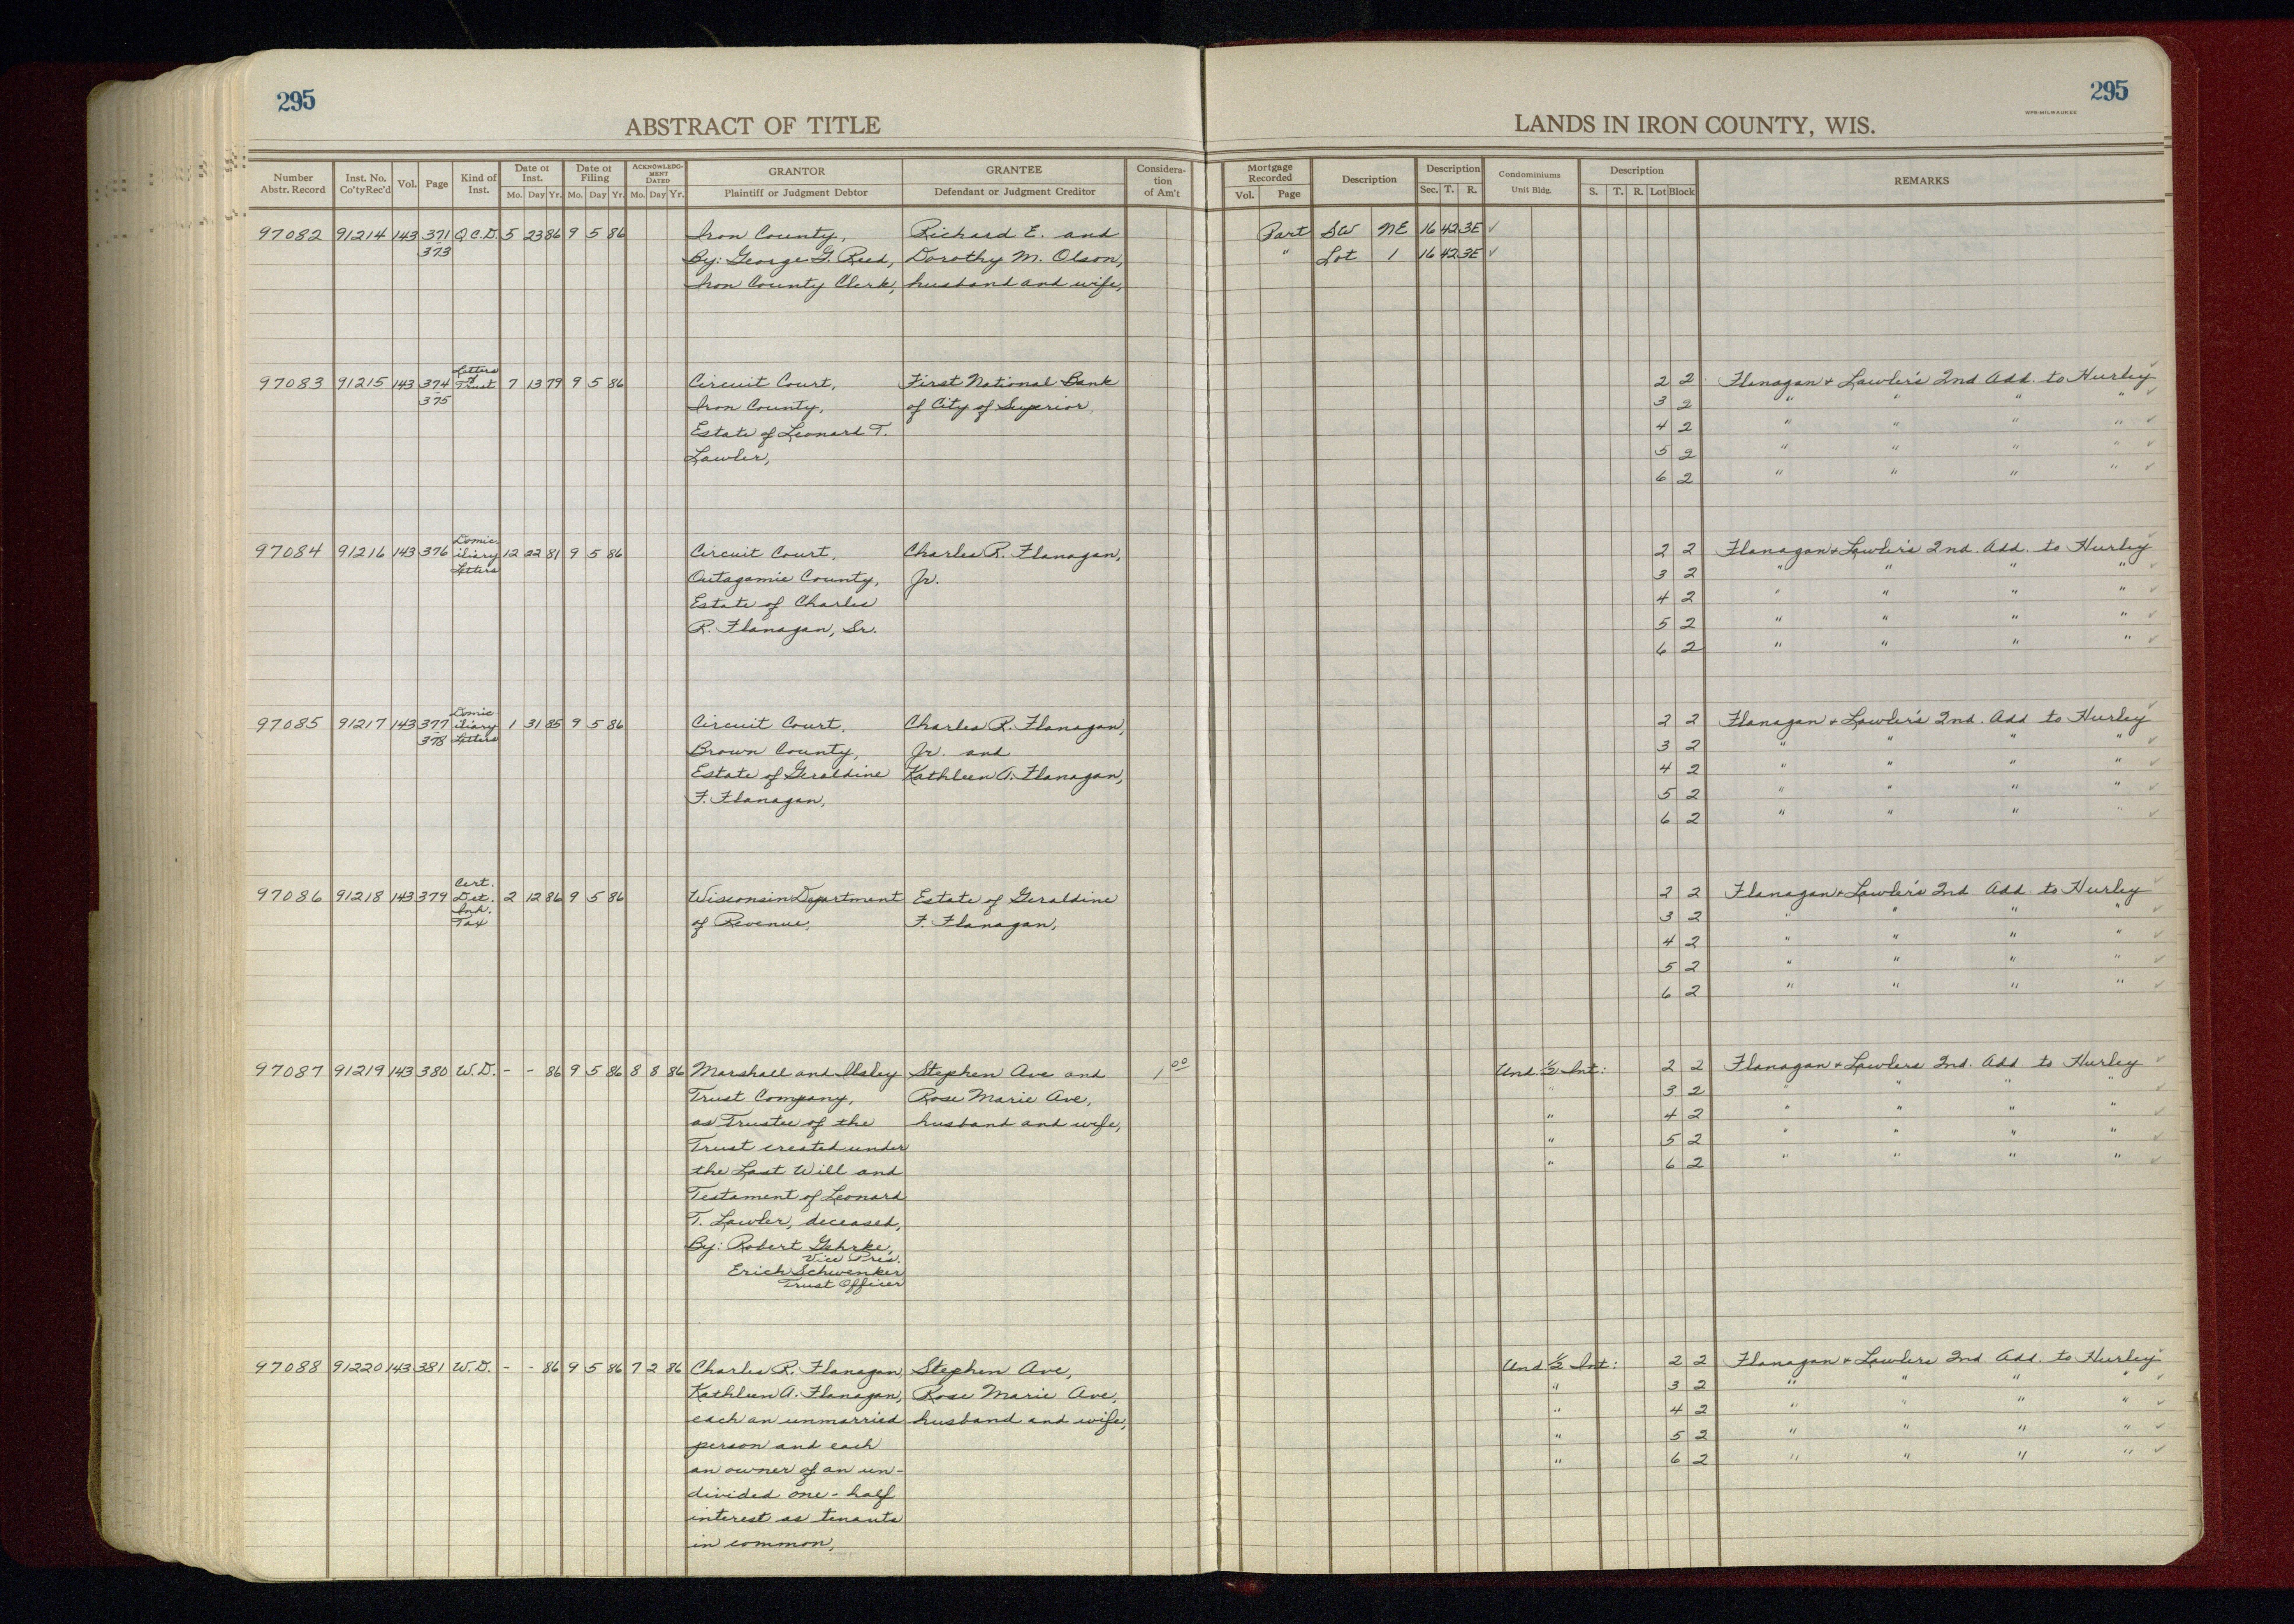 295
295
ABSTRACT OF TITLE
LANDS IN IRON COUNTY, WIS.
NPB-MILWAUKEE
Number Abstr. Record | Inst. No. Co'ty Rec'd | Vol. | Page | Kind of Inst. | Date of Inst. Mo. Day Yr. | Date of Filing Mo. Day Yr. | ACKNOWLEDG-MENT DATED Mo. Day Yr. | GRANTOR Plaintiff or Judgment Debtor | GRANTEE Defendant or Judgment Creditor | Considera-tion of Am't | Mortgage Recorded Vol. Page | Description | Description Sec. T. R. | Condominiums Unit Bldg. | Description S. T. R. Lot Block | REMARKS
97082 91214 143 371 Q.C.D. 5 23 86 9 5 86 Iron County, Richard E. and Part SW NE 16 42 3E ✓
373 By: George G. Reed, Dorothy M. Olson, " Lot 1 16 42 3E ✓
Iron County Clerk, husband and wife,
97083 91215 143 374 Letters of Trust 7 13 79 9 5 86 Circuit Court, First National Bank 2 2 Flanagan & Lawler's 2nd Add. to Hurley ✓
375 Iron County, of City of Superior, 3 2 " " " " ✓
Estate of Leonard T. 4 2 " " " " ✓
Lawler, 5 2 " " " " ✓
6 2 " " " " ✓
97084 91216 143 376 Domiciliary Letters 12 22 81 9 5 86 Circuit Court, Charles R. Flanagan, 2 2 Flanagan & Lawler's 2nd. Add. to Hurley ✓
Outagamie County, Jr. 3 2 " " " " ✓
Estate of Charles 4 2 " " " " ✓
R. Flanagan, Sr. 5 2 " " " " ✓
6 2 " " " " ✓
97085 91217 143 377 Domiciliary Letters 1 31 85 9 5 86 Circuit Court, Charles R. Flanagan, 2 2 Flanagan & Lawler's 2nd. Add to Hurley ✓
378 Brown County, Jr. and 3 2 " " " " ✓
Estate of Geraldine Kathleen A. Flanagan, 4 2 " " " " ✓
F. Flanagan, 5 2 " " " " ✓
6 2 " " " " ✓
97086 91218 143 379 Cert. Det. Inh. Tax 2 12 86 9 5 86 Wisconsin Department Estate of Geraldine 2 2 Flanagan & Lawler's 2nd Add. to Hurley ✓
of Revenue, F. Flanagan, 3 2 " " " " ✓
4 2 " " " " ✓
5 2 " " " " ✓
6 2 " " " " ✓
97087 91219 143 380 W.D. - - 86 9 5 86 8 8 86 Marshall and Ilsley Stephen Ave and 1 00 Und. ½ Int: 2 2 Flanagan & Lawlers 2nd. Add to Hurley ✓
Trust Company, Rose Marie Ave, " 3 2 " " " " ✓
as Trustee of the husband and wife, " 4 2 " " " " ✓
Trust created under " 5 2 " " " " ✓
the Last Will and " 6 2 " " " " ✓
Testament of Leonard
T. Lawler, deceased,
By: Robert Gehrke,
Vice Pres.
Erich Schwenker
Trust Officer
97088 91220 143 381 W.D. - - 86 9 5 86 7 2 86 Charles R. Flanagan, Stephen Ave, Und ½ Int: 2 2 Flanagan & Lawlers 2nd Add. to Hurley ✓
Kathleen A. Flanagan, Rose Marie Ave, " 3 2 " " " " ✓
each an unmarried husband and wife, " 4 2 " " " " ✓
person and each " 5 2 " " " " ✓
an owner of an un- " 6 2 " " " " ✓
divided one-half
interest as tenants
in common,